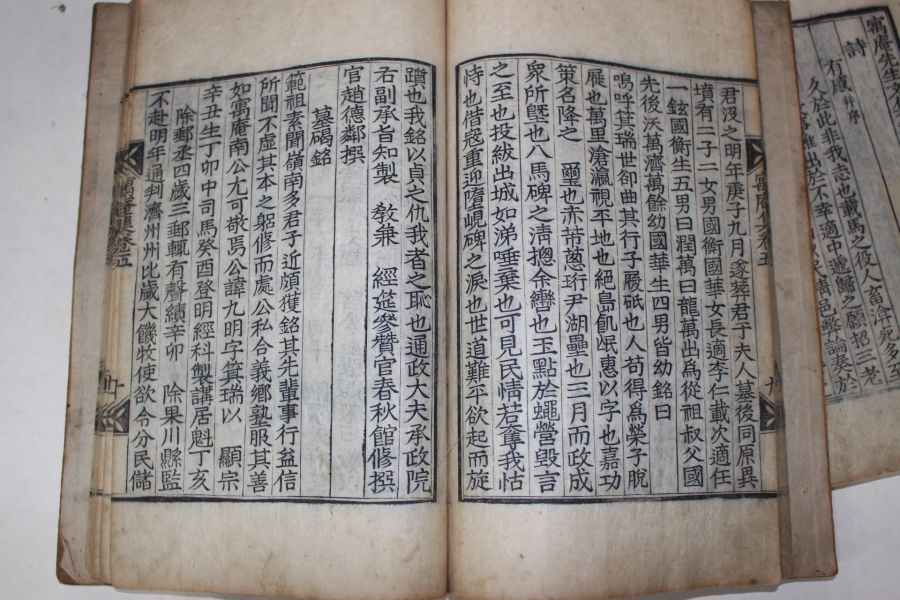 君沒之明年庚子九月遂葬君于夫人墓後同原異
墳有二子二女男國衡國華女長適李仁載次適任
一鉉國衡生五男曰潤萬曰龍萬出爲從祖叔父國
先後沃萬濟萬餘幼國華生四男皆幼銘曰
嗚呼箕瑞世卻曲其行子履砥也人苟得爲榮子脫
屣也萬里滄瀛視平地也絕島飢氓惠以字也嘉功
策名降之 璽也赤芾蔥珩尹湖壘也三月而政成
衆所曁也八馬碑之淸摠余轡也玉點於蠅營毀言
之至也投紱出城如涕唾棄也可見民情若奪我怙
恃也借寇重迎墮峴碑之淚也世道難平欲起而旋
躓也我銘以貞之仇我者之恥也通政大夫承政院
右副承旨知製 敎兼 經筵參贊官春秋館修撰
官趙德鄰撰
墓碣銘
範祖素聞嶺南多君子近頗獲銘其先輩事行益信
所聞不虛其本之躬修而處公私合義鄕塾服其善
如寓庵南公尤可敬焉公諱九明字箕瑞以 顯宗
辛丑生丁卯中司馬癸酉登明經科製講居魁丁亥
除郵丞四歲三郵輒有聲績辛卯 除果川縣監
不赴明年通判濟州州比歲大饑牧使欲令分民儲
寓庵集卷之五
廿
寓庵先生文集
詩
有感 幷序
久於此非我志也載馬之役人畜渰死多至